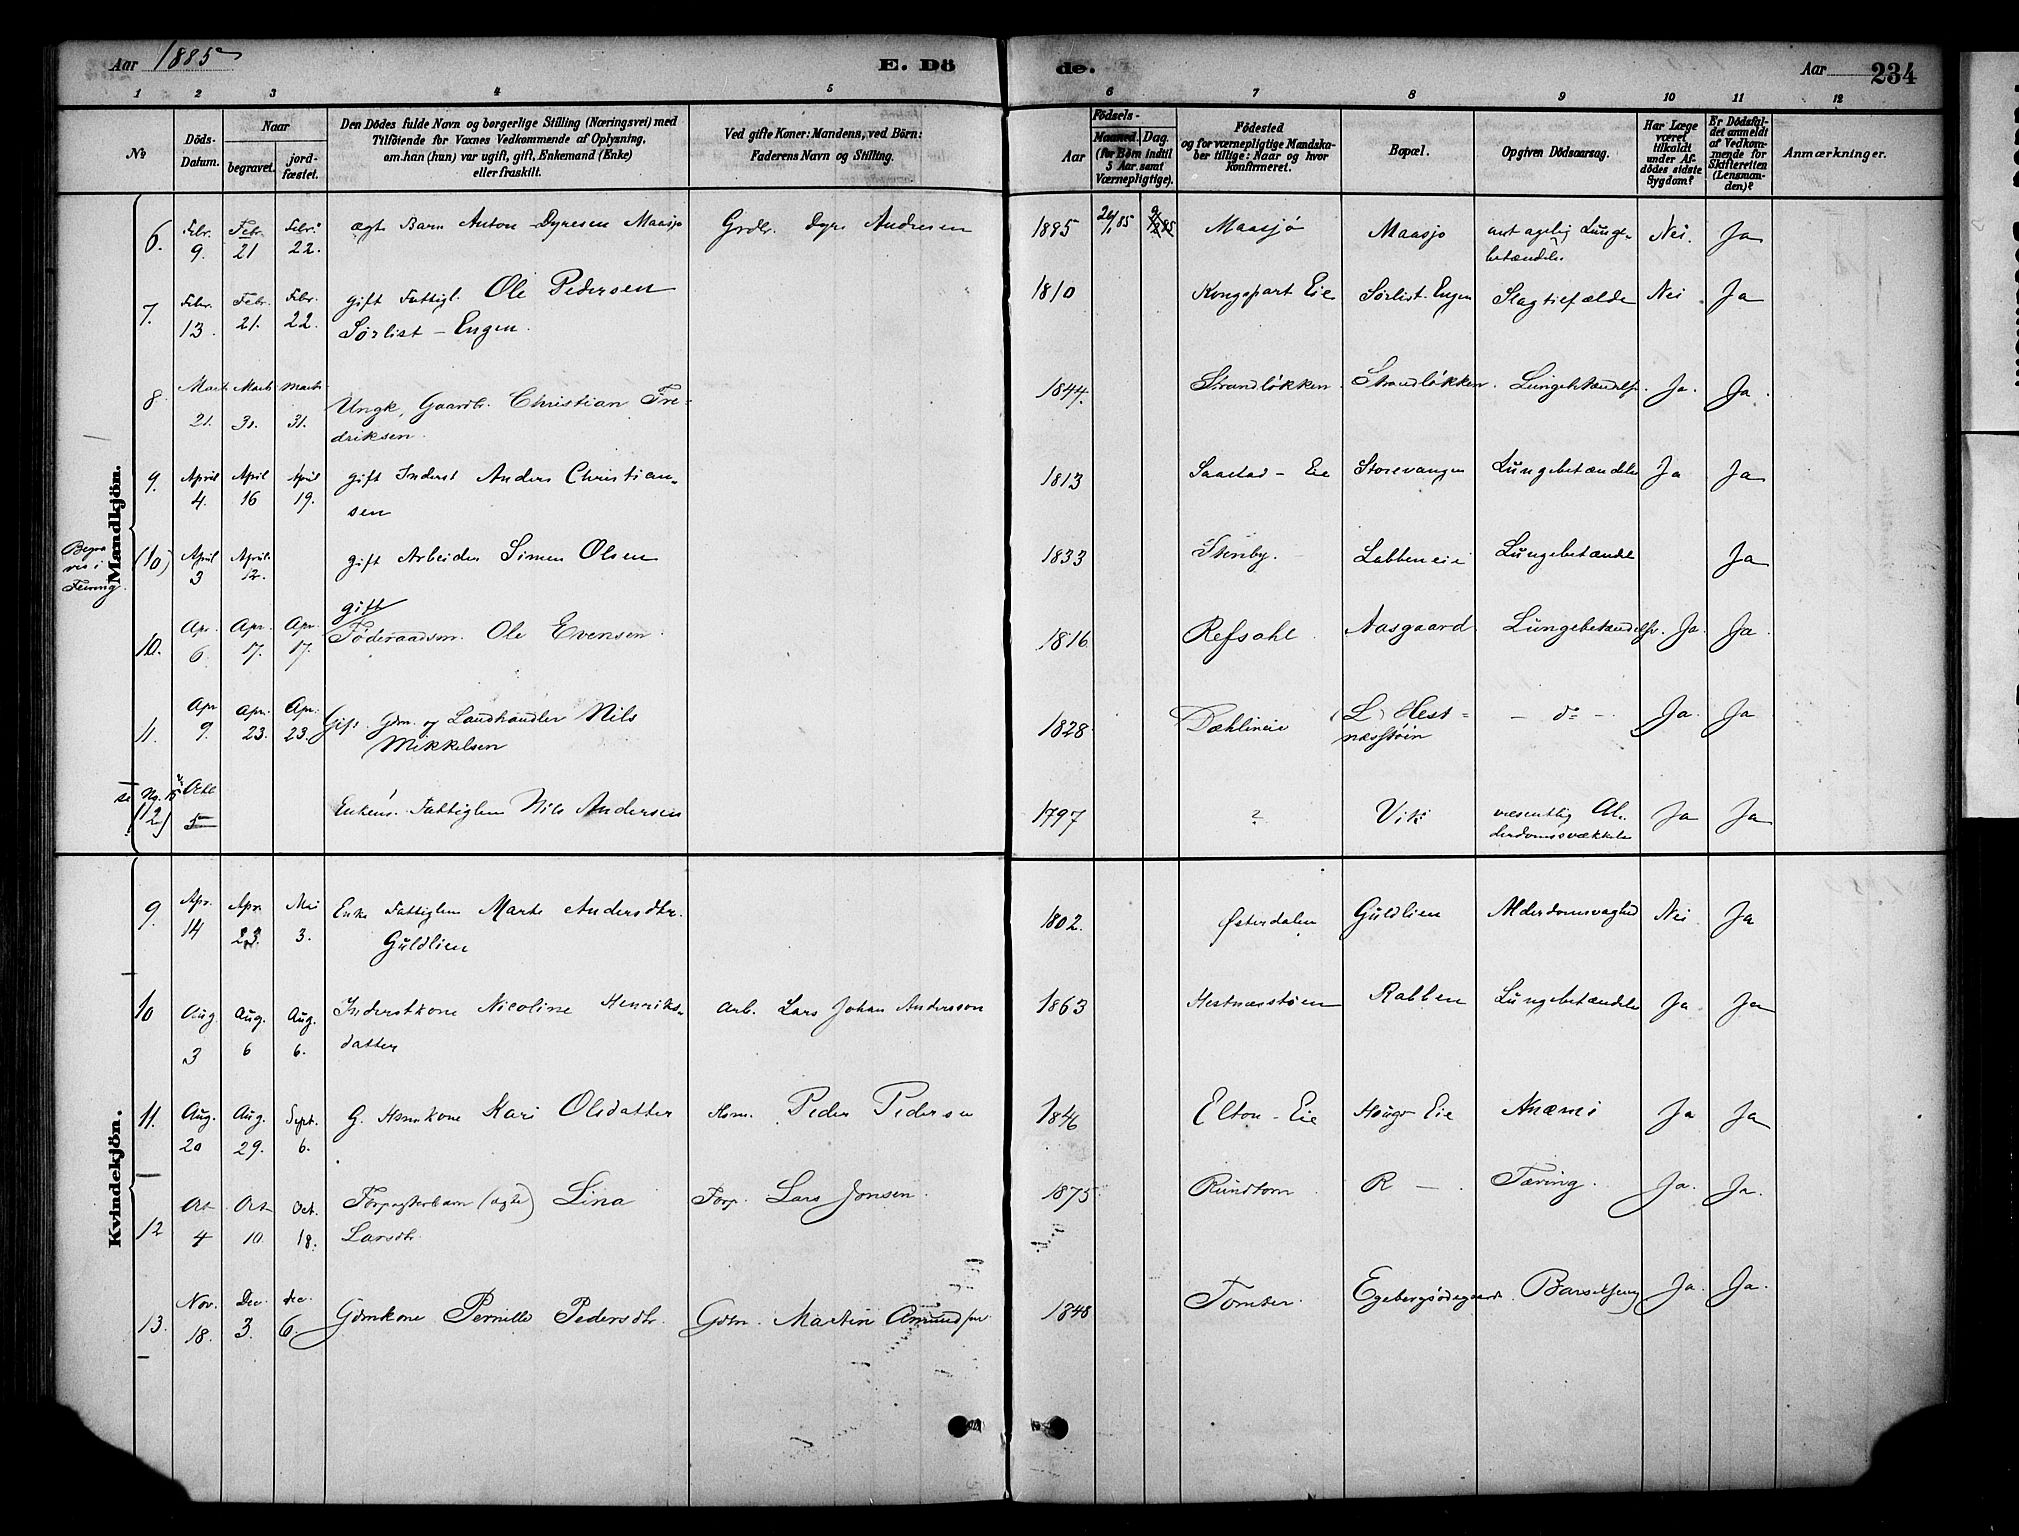 Aar 1885
E. Dö
de.
Aar 234
1 2 3 4 5 6 7 8 9 10 11 12
No
Döds-
Datum.
Naar
begravet.
jord-
fæstet.
Den Dödes fulde Navn og borgerlige Stilling (Næringsvei) med
Tilföiende for Voxnes Vedkommende af Oplysning,
om han (hun) var ugift, gift, Enkemand (Enke)
eller fraskilt.
Ved gifte Koner: Mandens, ved Börn:
Faderens Navn og Stilling.
Födsels-
Aar
Maaned. Dag.
(for Börn indtil
5 Aar samt
Værnepligtige).
Födested
og for værnepligtige Mandska-
ber tillige: Naar og hvor
Konfirmeret.
Bopæl.
Opgiven Dödsaarsag.
Har Læge
været
tilkaldt
under Af-
dödes sidste
Sygdom?
Er Dödsfal-
det anmeldt
af Vedkom-
mende for
Skifteretten
(Lensman-
den)?
Anmærkninger.
Mandkjön.
6. Febr. 9. Febr. 21 Febr. 22. ægte Barn Anton Dyresen Maasjø Grdbr. Dyre Andresen 1885 Maasjø Maasjø Lunge-
betændelse Nei. Ja
7. Febr. 13. Febr. 21. Febr. 22. gift Fattigl. Ole Pedersen
Sørlist-Engen. 1810 Kongspart Eie Sørlist-Engen Slagtilfælde Nei Ja
8. Marts 21. Marts 30. Marts 31. Ungk. Gaardbr. Christian Fre-
driksen. 1844. Strandløkken Strandløkken. Lungebetændelse. Ja. Ja.
9. April 4. April 16 April 19. gift Inderst Anders Christian-
sen 1813 Saastad-Eie Storevangen Lungebetændelse Ja Ja
Begra
ves i
Feiring
(10) April 3 April 12. gift Arbeider Simen Olsen 1833 Stenby. Labbeneie Lungebetændel Ja
10. Apr. 6. Apr. 17. Apr. 17. gift
Føderaadsm. Ole Evensen. 1816. Refsahl Aasgaard. Lungebetændelse. Ja. Ja.
11. Apr 9. Apr. 23. Apr. 23. Gift. Gdm. og Landhandler Nils
Mikkelsen 1828 Dæhlineie (L) Hest-
næsstøin – do – Ja. Ja
(12) Octb 5 Enkem. Fattiglem Nils Andersen 1797 ? Vik væsentlig Al-
derdomssvækkelse Ja Ja
Kvindekjön.
9. Apr. 14 Apr. 23. Mai 3. Enke Fattiglem Marte Andersdtr.
Guldlien 1802. Østerdalen Guldlien Alderdomsvaghed Nei Ja
10 Aug. 3 Aug. 6 Aug. 6. Inderstkone Nicoline Henriks-
datter Arb. Lars Johan Andersson 1863 Hestnæsstøen Rabben Lungebetændelse Ja Ja
11. Aug. 20 Aug. 29. Sept. 6. G. Hsmkone Kari Olsdatter Hsm. Peder Pedersen 1846 Elton-Eie Houge Eie Anæmi Ja Ja
12 Oct 4 Oct 10. Oct. 18. Forpagterbarn (ægte) Lina
Larsdtr. Forp. Lars Jonsen. 1875 Rundtom R – Tæring. Ja. Ja.
13. Nov. 18. Dec. 3. dec. 6. Gdmkone Pernille Pedersdtr. Gdm. Martin Amundsen 1848 Tomter. Egebergsødegaard. Barselseng Ja. Ja.